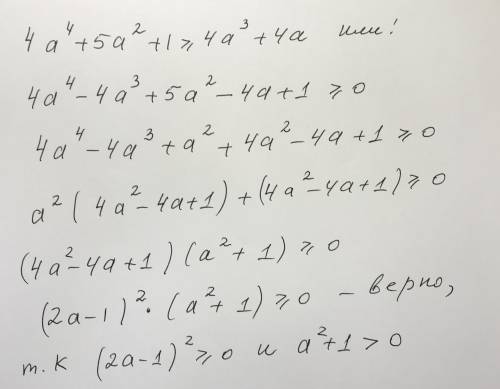 4a⁴+5a²+1 ⩾ 4a³+4a или!
4a⁴-4a³+5a²-4a+1 ⩾ 0
4a⁴-4a³+a²+4a²-4a+1 ⩾ 0
a²(4a²-4a+1)+(4a²-4a+1) ⩾ 0
(4a²-4a+1)(a²+1) ⩾ 0
(2a-1)²·(a²+1) ⩾ 0 - верно,
т.к (2a-1)² ⩾ 0 и a²+1 > 0